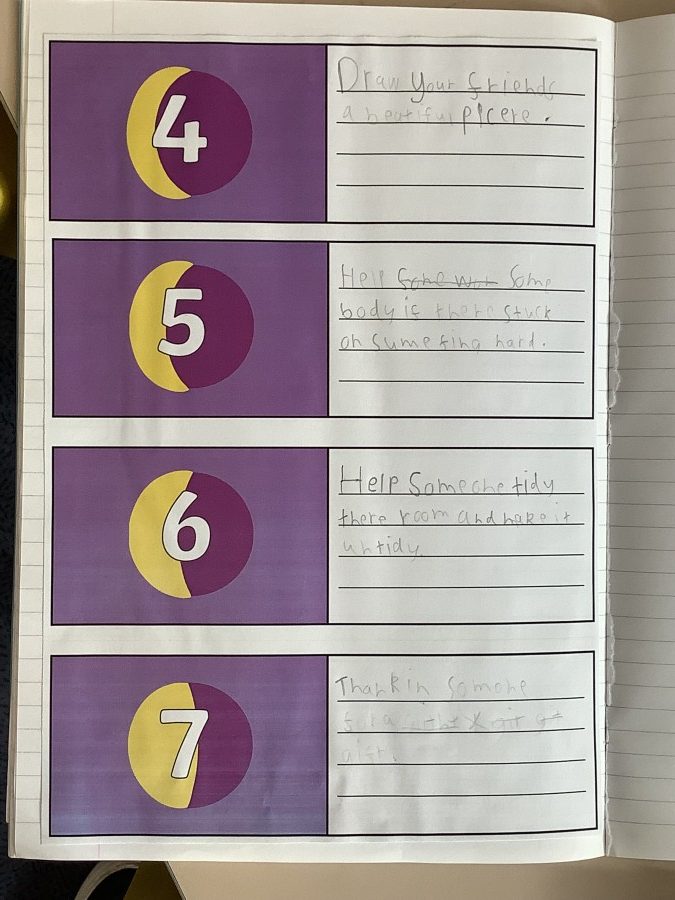 4
Draw your friends
a beatiful picere.
5
Help Some
body if there stuck
on sumefing hard.
6
Help Someone tidy
there room and make it
untidy.
7
Thankin Somone
for a
gift.